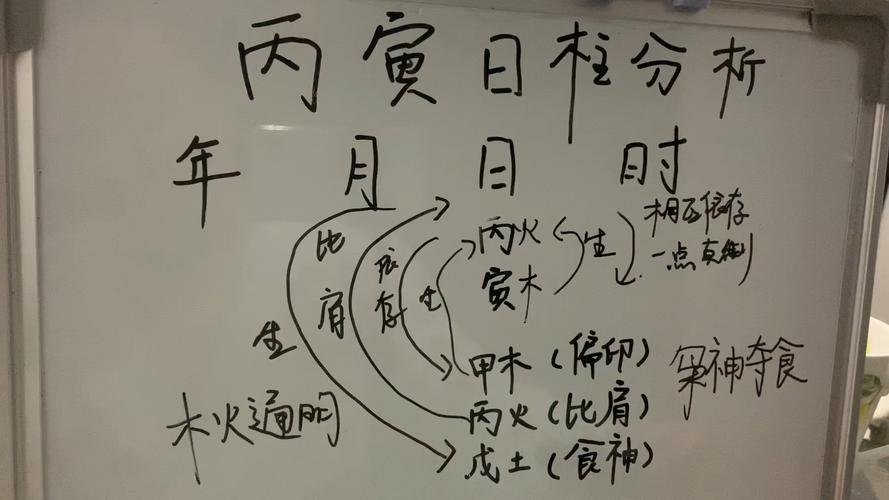 丙寅日柱分析
年 月 日 时
丙火
生
相互依存
寅木
一点真
比肩
依存
生
生
甲木(偏印)
枭神夺食
丙火(比肩)
木火通明
戊土(食神)